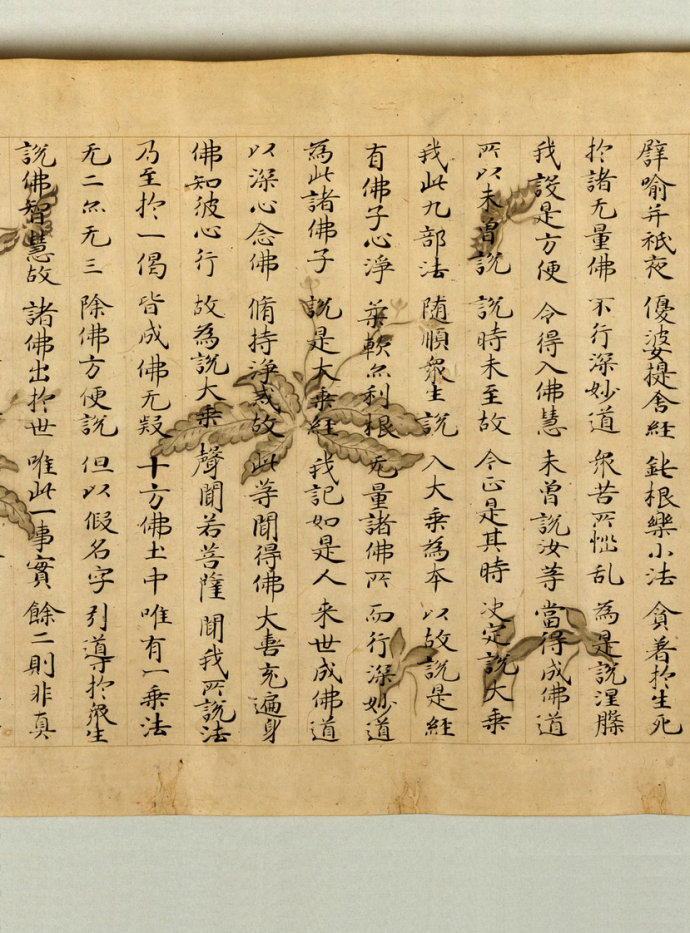 譬喻并祇夜 優婆提舍経 鈍根樂小法 貪著扵生死
扵諸无量佛 不行深妙道 衆苦所惱乱 為是說涅槃
我設是方便 令得入佛慧 未曾說汝等 當得成佛道
所以未曾說 說時未至故 今正是其時 决定說大乗
我此九部法 随順衆生說 入大乗為本 以故說是経
有佛子心淨 柔軟尓利根 无量諸佛所 而行深妙道
為此諸佛子 說是大乗経 我記如是人 来世成佛道
以深心念佛 脩持淨戒故 此等聞得佛 大喜充遍身
佛知彼心行 故為說大乗 聲聞若菩薩 聞我所說法
乃至扵一偈 皆成佛无疑 十方佛土中 唯有一乗法
无二尓无三 除佛方便說 但以假名字 引導扵衆生
說佛智慧故 諸佛出扵世 唯此一事實 餘二則非真